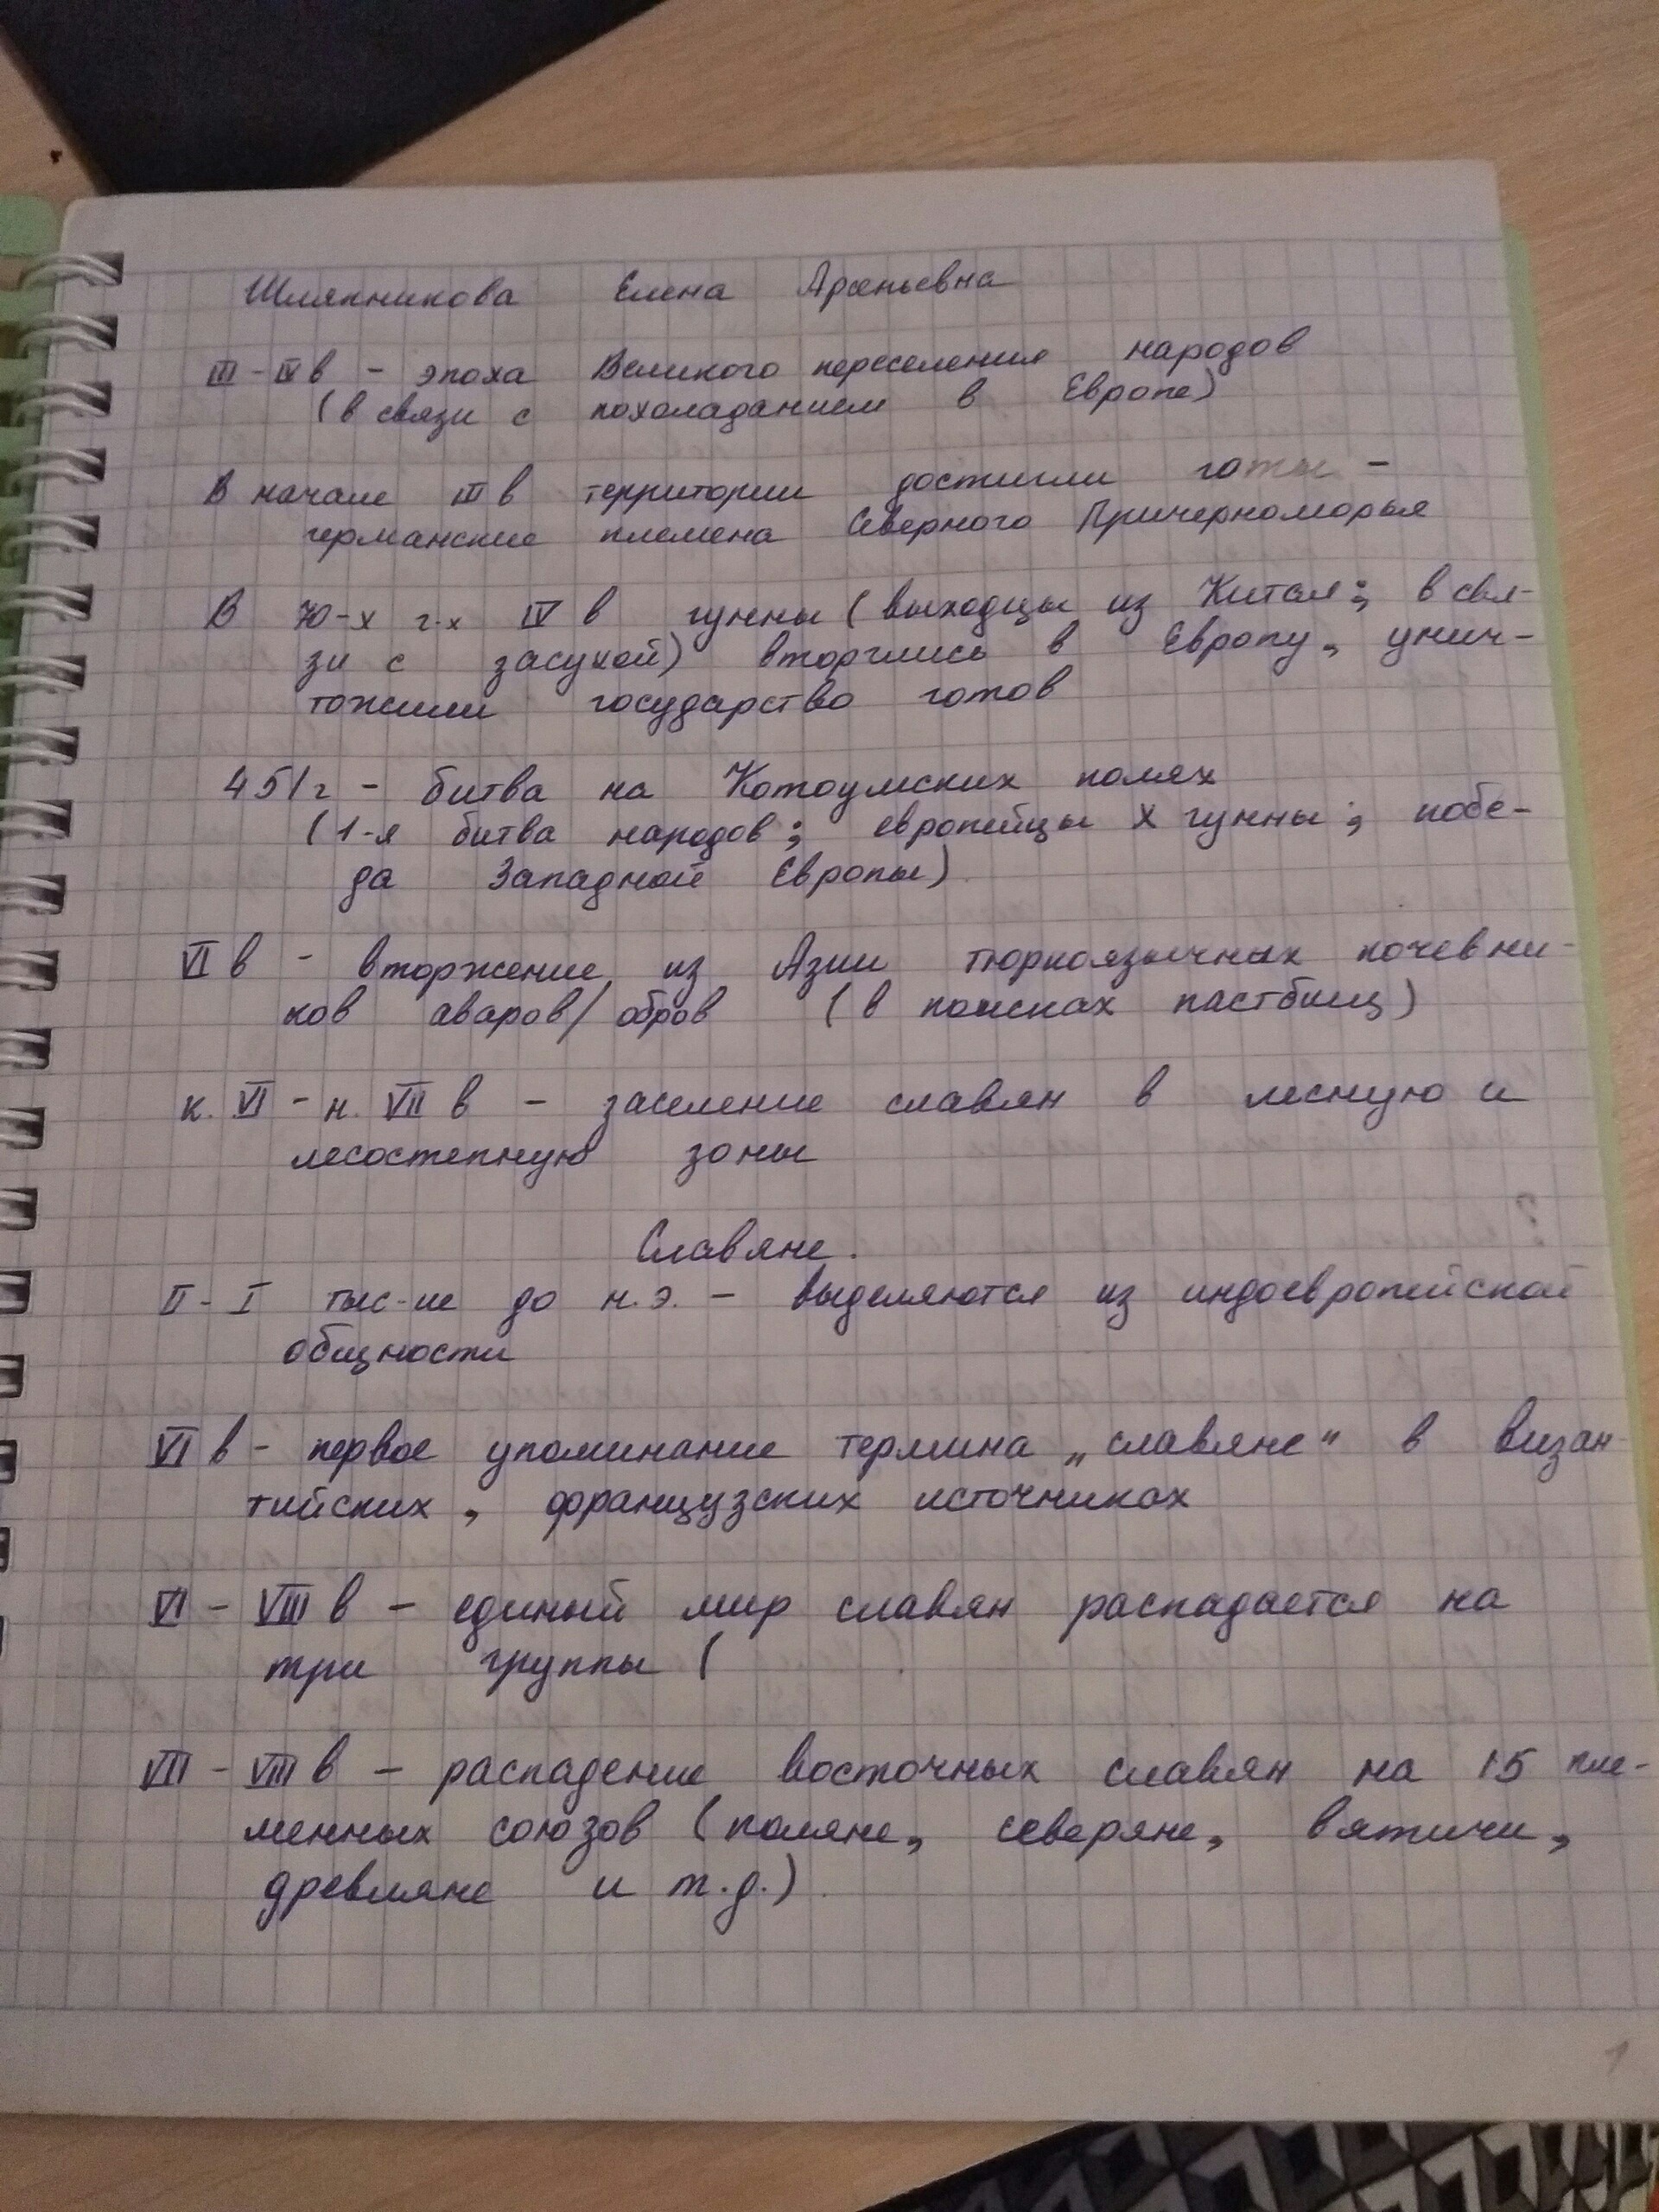 Шляпникова Елена Арсеньевна
III - IV в - эпоха Великого переселения народов
(в связи с похолоданием в Европе)
В начале III в территории достигли готы -
германские племена Северного Причерноморья
В 70-х г.х IV в гунны (выходцы из Китая; в свя-
зи с засухой) вторглись в Европу, унич-
тожили государство готов
451г - битва на Котоумских полях
(1-я битва народов; европейцы X гунны; побе-
да Западной Европы)
VI в - вторжение из Азии тюркоязычных кочевни-
ков аваров/обров (в поисках пастбищ)
к. VI - н. VII в - заселение славян в лесную и
лесостепную зоны
Славяне.
II - I тыс-ие до н.э. - выделяются из индоевропейской
общности
VI в - первое упоминание термина „славяне" в визан-
тийских, французских источниках
VI - VIII в - единый мир славян распадается на
три группы (
VII - VIII в - распадение восточных славян на 15 пле-
менных союзов (поляне, северяне, вятичи,
древляне и т.д.)
1